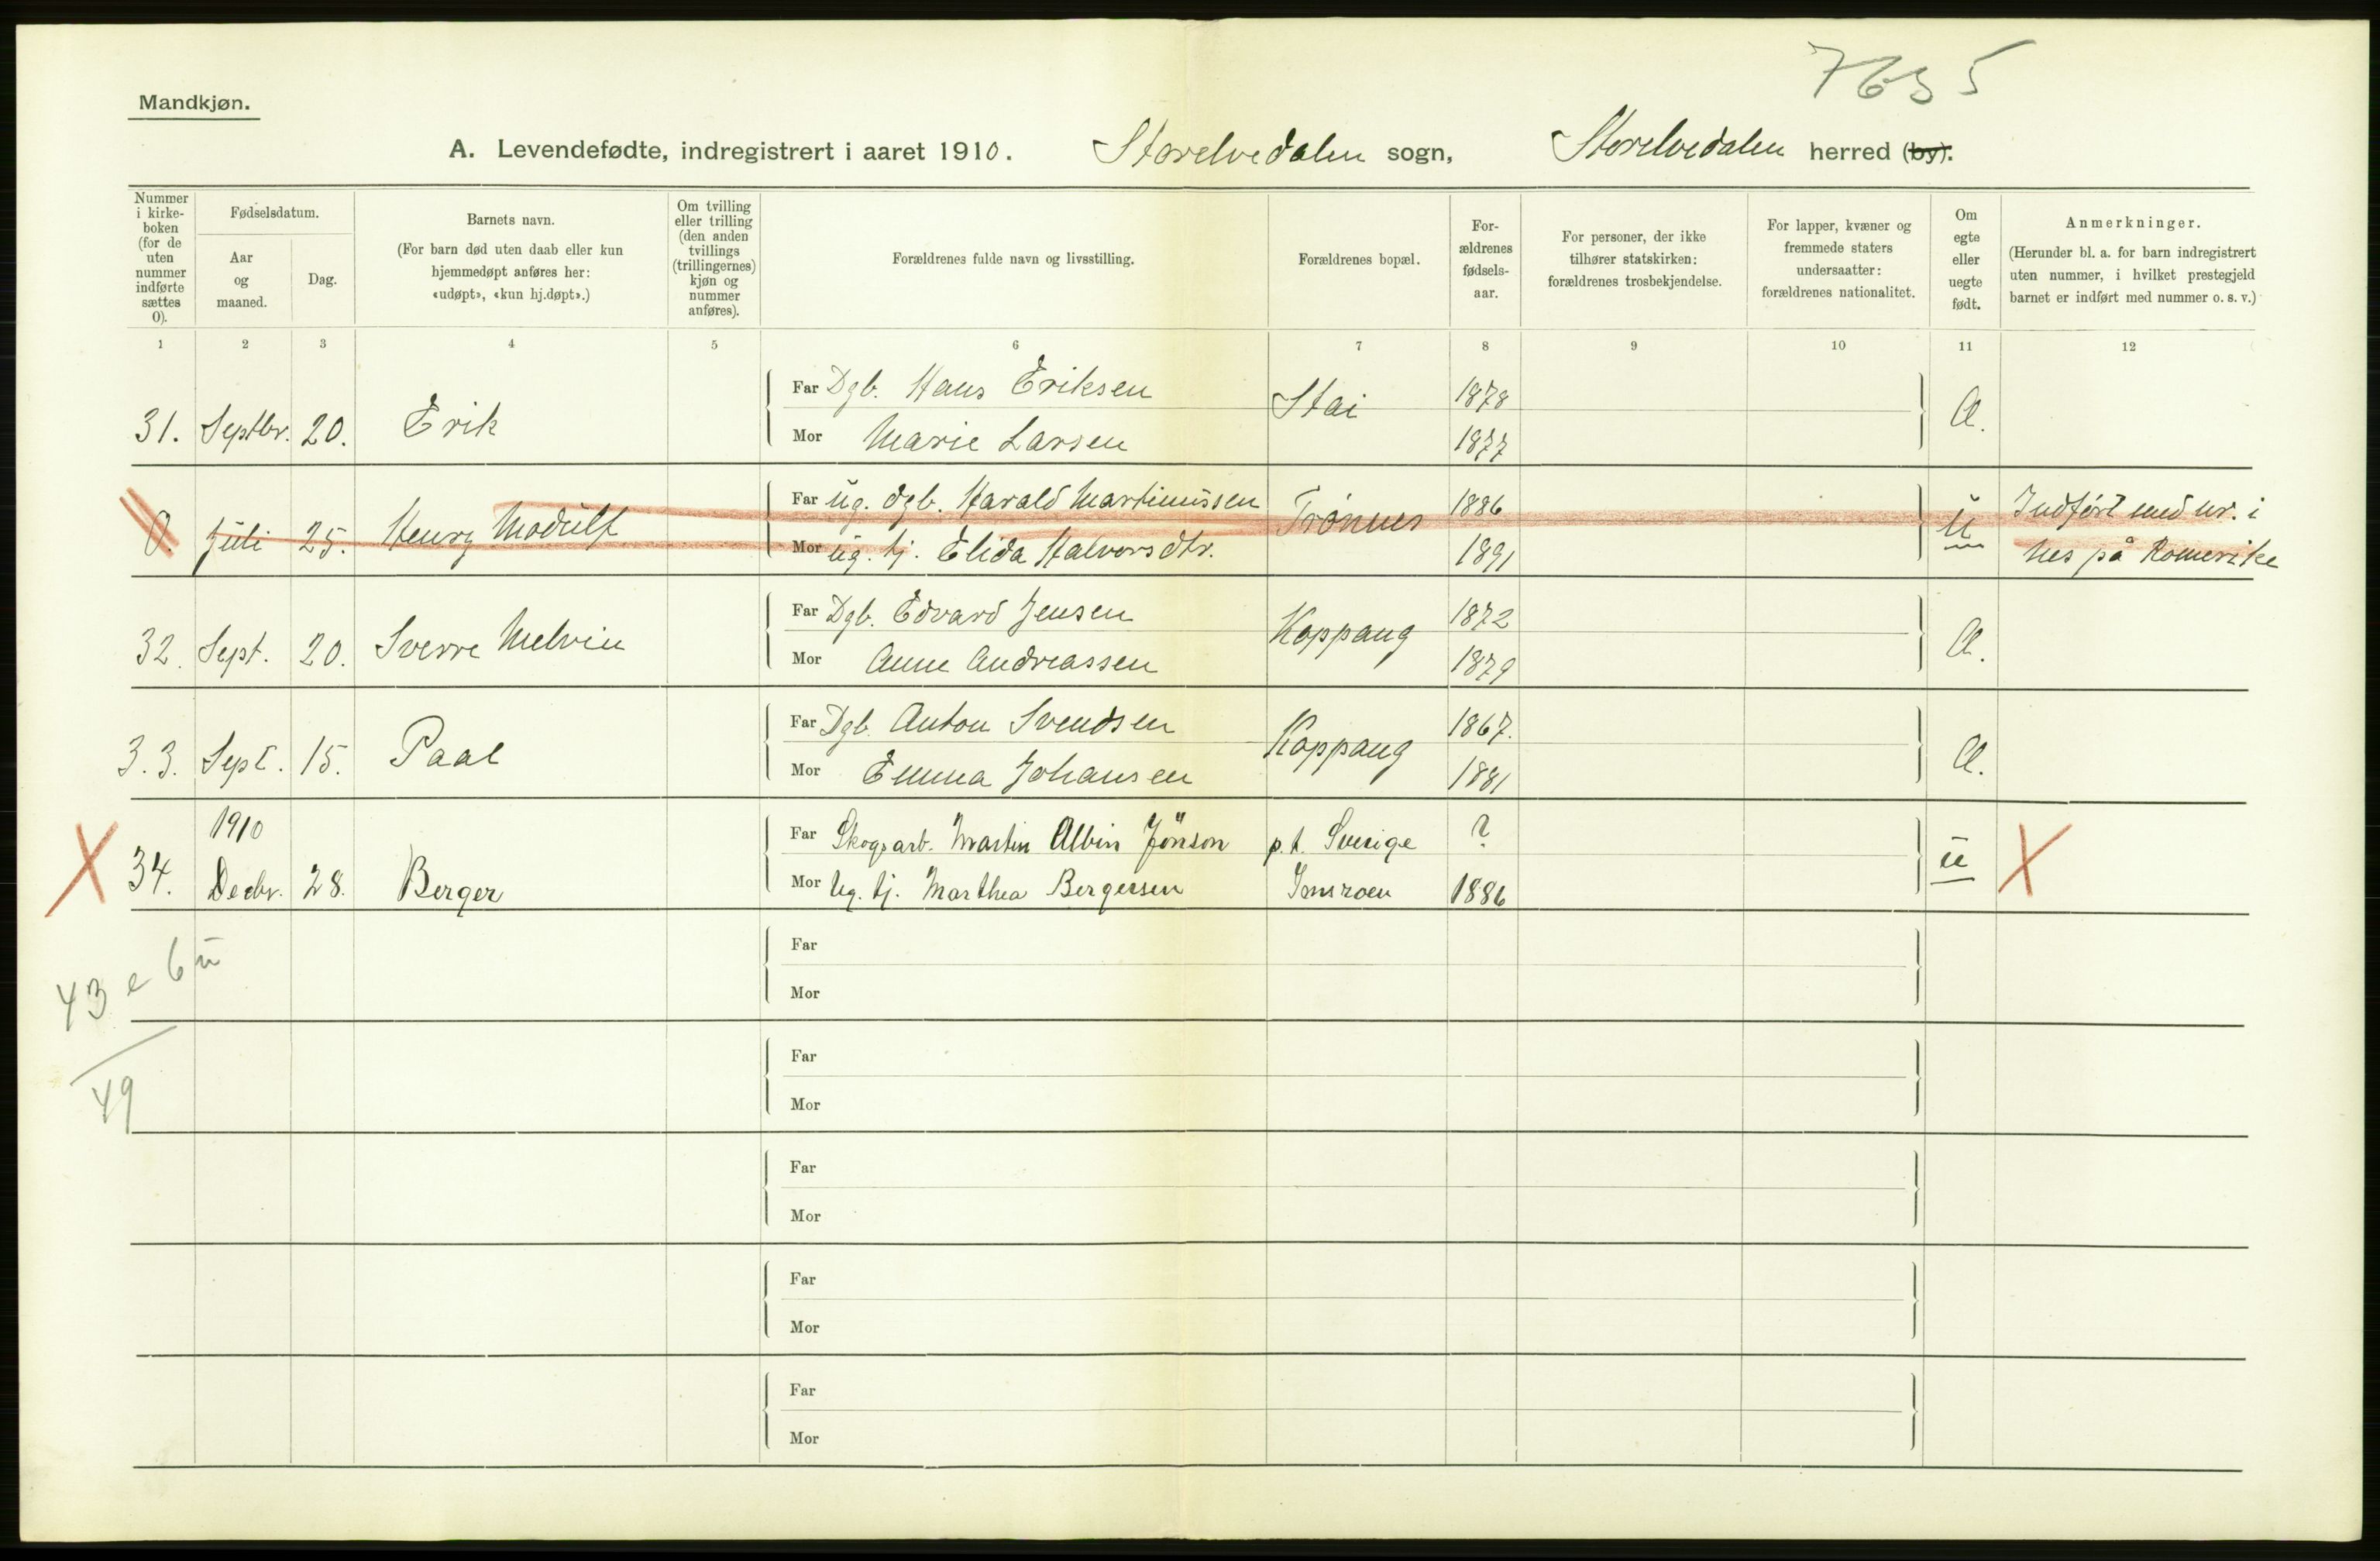 7635
Mandkjøn.
A. Levendefødte, indregistrert i aaret 1910. Storelvedalen sogn, Storelvedalen herred (by).
Nummer i kirkeboken (for de uten nummer indførte sættes 0).
Fødselsdatum.
Aar og maaned.
Dag.
Barnets navn.
(For barn død uten daab eller kun hjemmedøpt anføres her: «udøpt», «kun hj.døpt».)
Om tvilling eller trilling (den anden tvillings (trillingernes) kjøn og nummer anføres).
Forældrenes fulde navn og livsstilling.
Forældrenes bopæl.
For-ældrenes fødsels-aar.
For personer, der ikke tilhører statskirken: forældrenes trosbekjendelse.
For lapper, kvæner og fremmede staters undersaatter: forældrenes nationalitet.
Om egte eller uegte født.
Anmerkninger.
(Herunder bl. a. for barn indregistrert uten nummer, i hvilket prestegjeld barnet er indført med nummer o. s. v.)
1 2 3 4 5 6 7 8 9 10 11 12
Far Dgb. Hans Eriksen Stai 1878
31. Septbr. 20. Erik Mor Marie Larsen 1877 Æ.
Far ug. dgb. Harald Martinussen Trønnes 1886 Indført med nr. i
0. Juli 25. Henry Modulf Mor ug. tj. Elida Halvorsdtr. 1891 u Nes på Romerike
Far Dgb. Edvard Jensen Koppang 1872
32. Sept. 20. Sverre Melvin Mor Anne Andreassen 1879 Æ.
Far Dgb. Anton Svendsen Koppang 1867.
33. Sept. 15. Paal Mor Emma Johansen 1881 Æ.
1910 Far Skogsarb. Martin Albin Jönson p.t. Sverige ?
X 34. Decbr. 28. Berger Mor Ug. tj. Marthea Bergersen Imsroen 1886 u X
43 e 6 u
49
Far
Mor
Far
Mor
Far
Mor
Far
Mor
Far
Mor